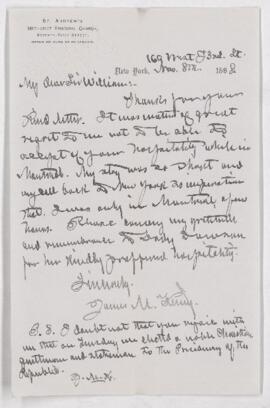 ST. ANDREW'S
METHODIST EPISCOPAL CHURCH,
169 West 73rd St.
New York, Nov. 8th, 1888
My dear Sir William:-
Thanks for your
kind letter. It was matter of great
regret to me not to be able to
accept of your hospitality while in
Montreal. My stay was so short and
my call back to New York so imperative
that I was only in Montreal a few
hours. Please convey my gratitude
and remembrance to Lady Dawson
for her kindly proffered hospitality.
Sincerely,
James M. King.
P.S. I doubt not that you rejoice with
us that on Tuesday we elected a noble Christian
gentleman and statesman to the Presidency of the
Republic.
J. M. K.